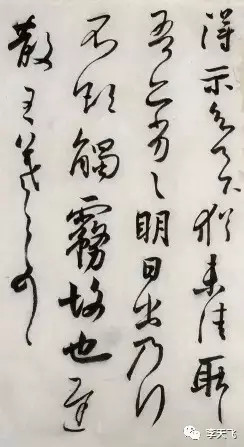 得示知足下猶未佳耿耿
吾亦劣劣明日出乃行
不欲觸霧故也遲
散王羲之頓首
李天飞